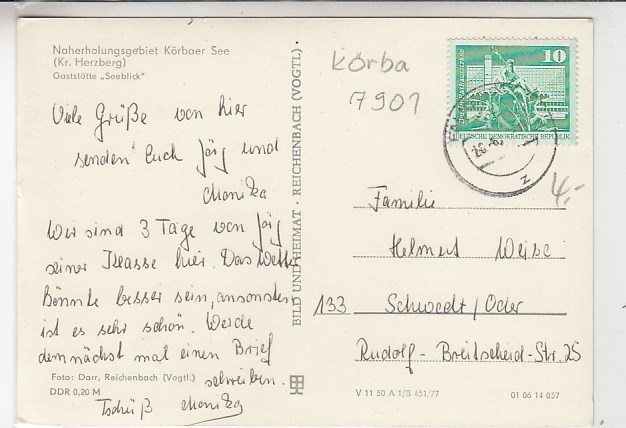 Naherholungsgebiet Körbaer See
(Kr. Herzberg)
Gaststätte „Seeblick"
Viele Grüße von hier
senden Euch Jörg und
Monika
Wir sind 3 Tage von Jörg
seiner Klasse hier. Das Wetter
könnte besser sein, ansonsten
ist es sehr schön. Werde
demnächst mal einen Brief
schreiben.
Tschüß Monika
Foto: Darr, Reichenbach (Vogtl.)
DDR 0,20 M
BILD UND HEIMAT · REICHENBACH (VOGTL) ·
Körba
7901
10
DEUTSCHE DEMOKRATISCHE REPUBLIK
4,-
Familie
Helmut Weise
133 Schwedt/Oder
Rudolf-Breitscheid-Str. 25
V 11 50 A 1/B 451/77
01 06 14 057